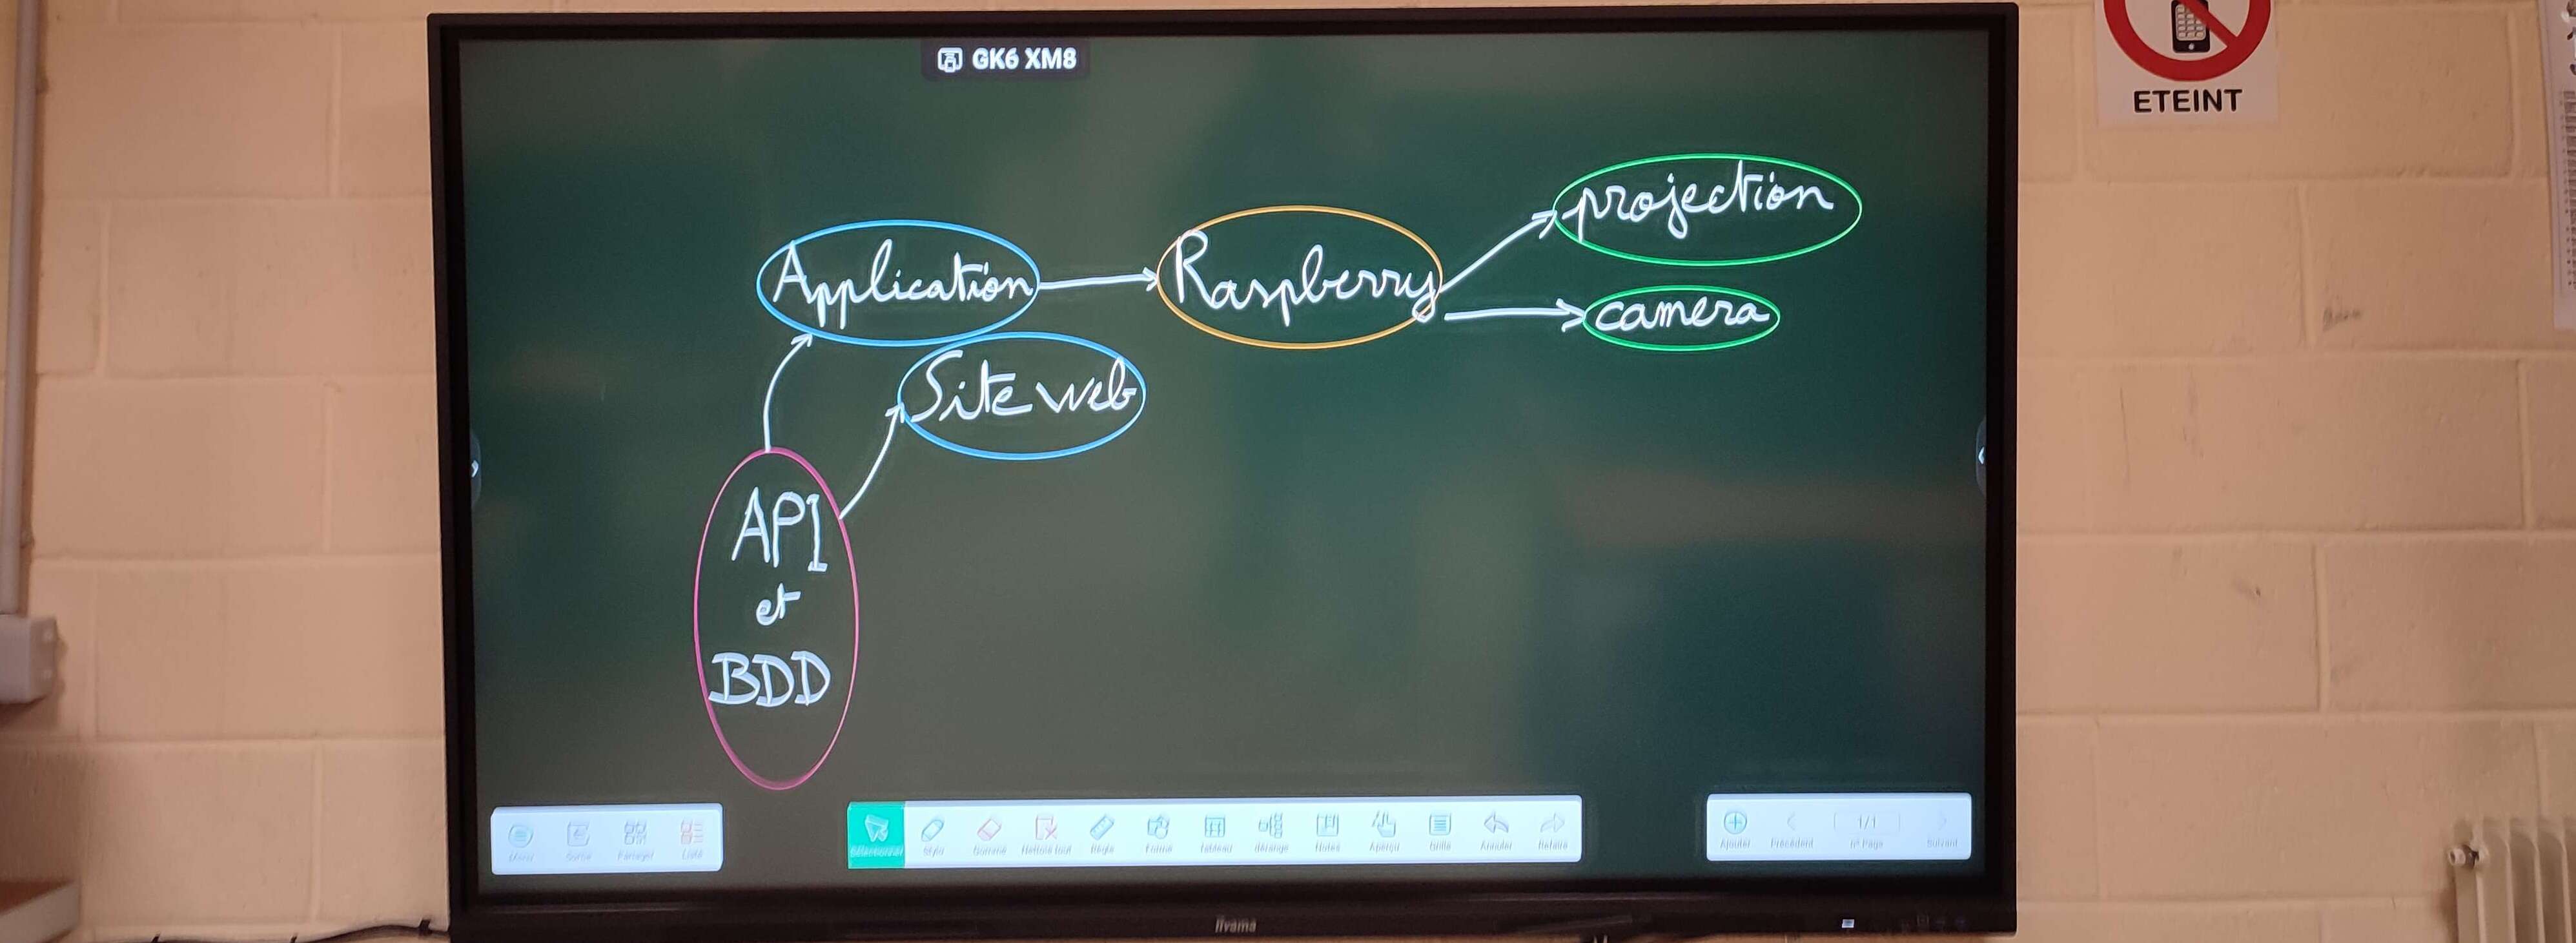 GK6 XM8
ETEINT
projection
Application
Raspberry
camera
Site web
API
et
BDD
Menu
Sortie
Partager
Liste
Sélectionner
Stylo
Gomme
Nettoie tout
Règle
Forme
tableau
Notes
Aperçu
Grille
Annuler
Refaire
Ajouter
Précédent
1/1
n° Page
Suivant
iiyama